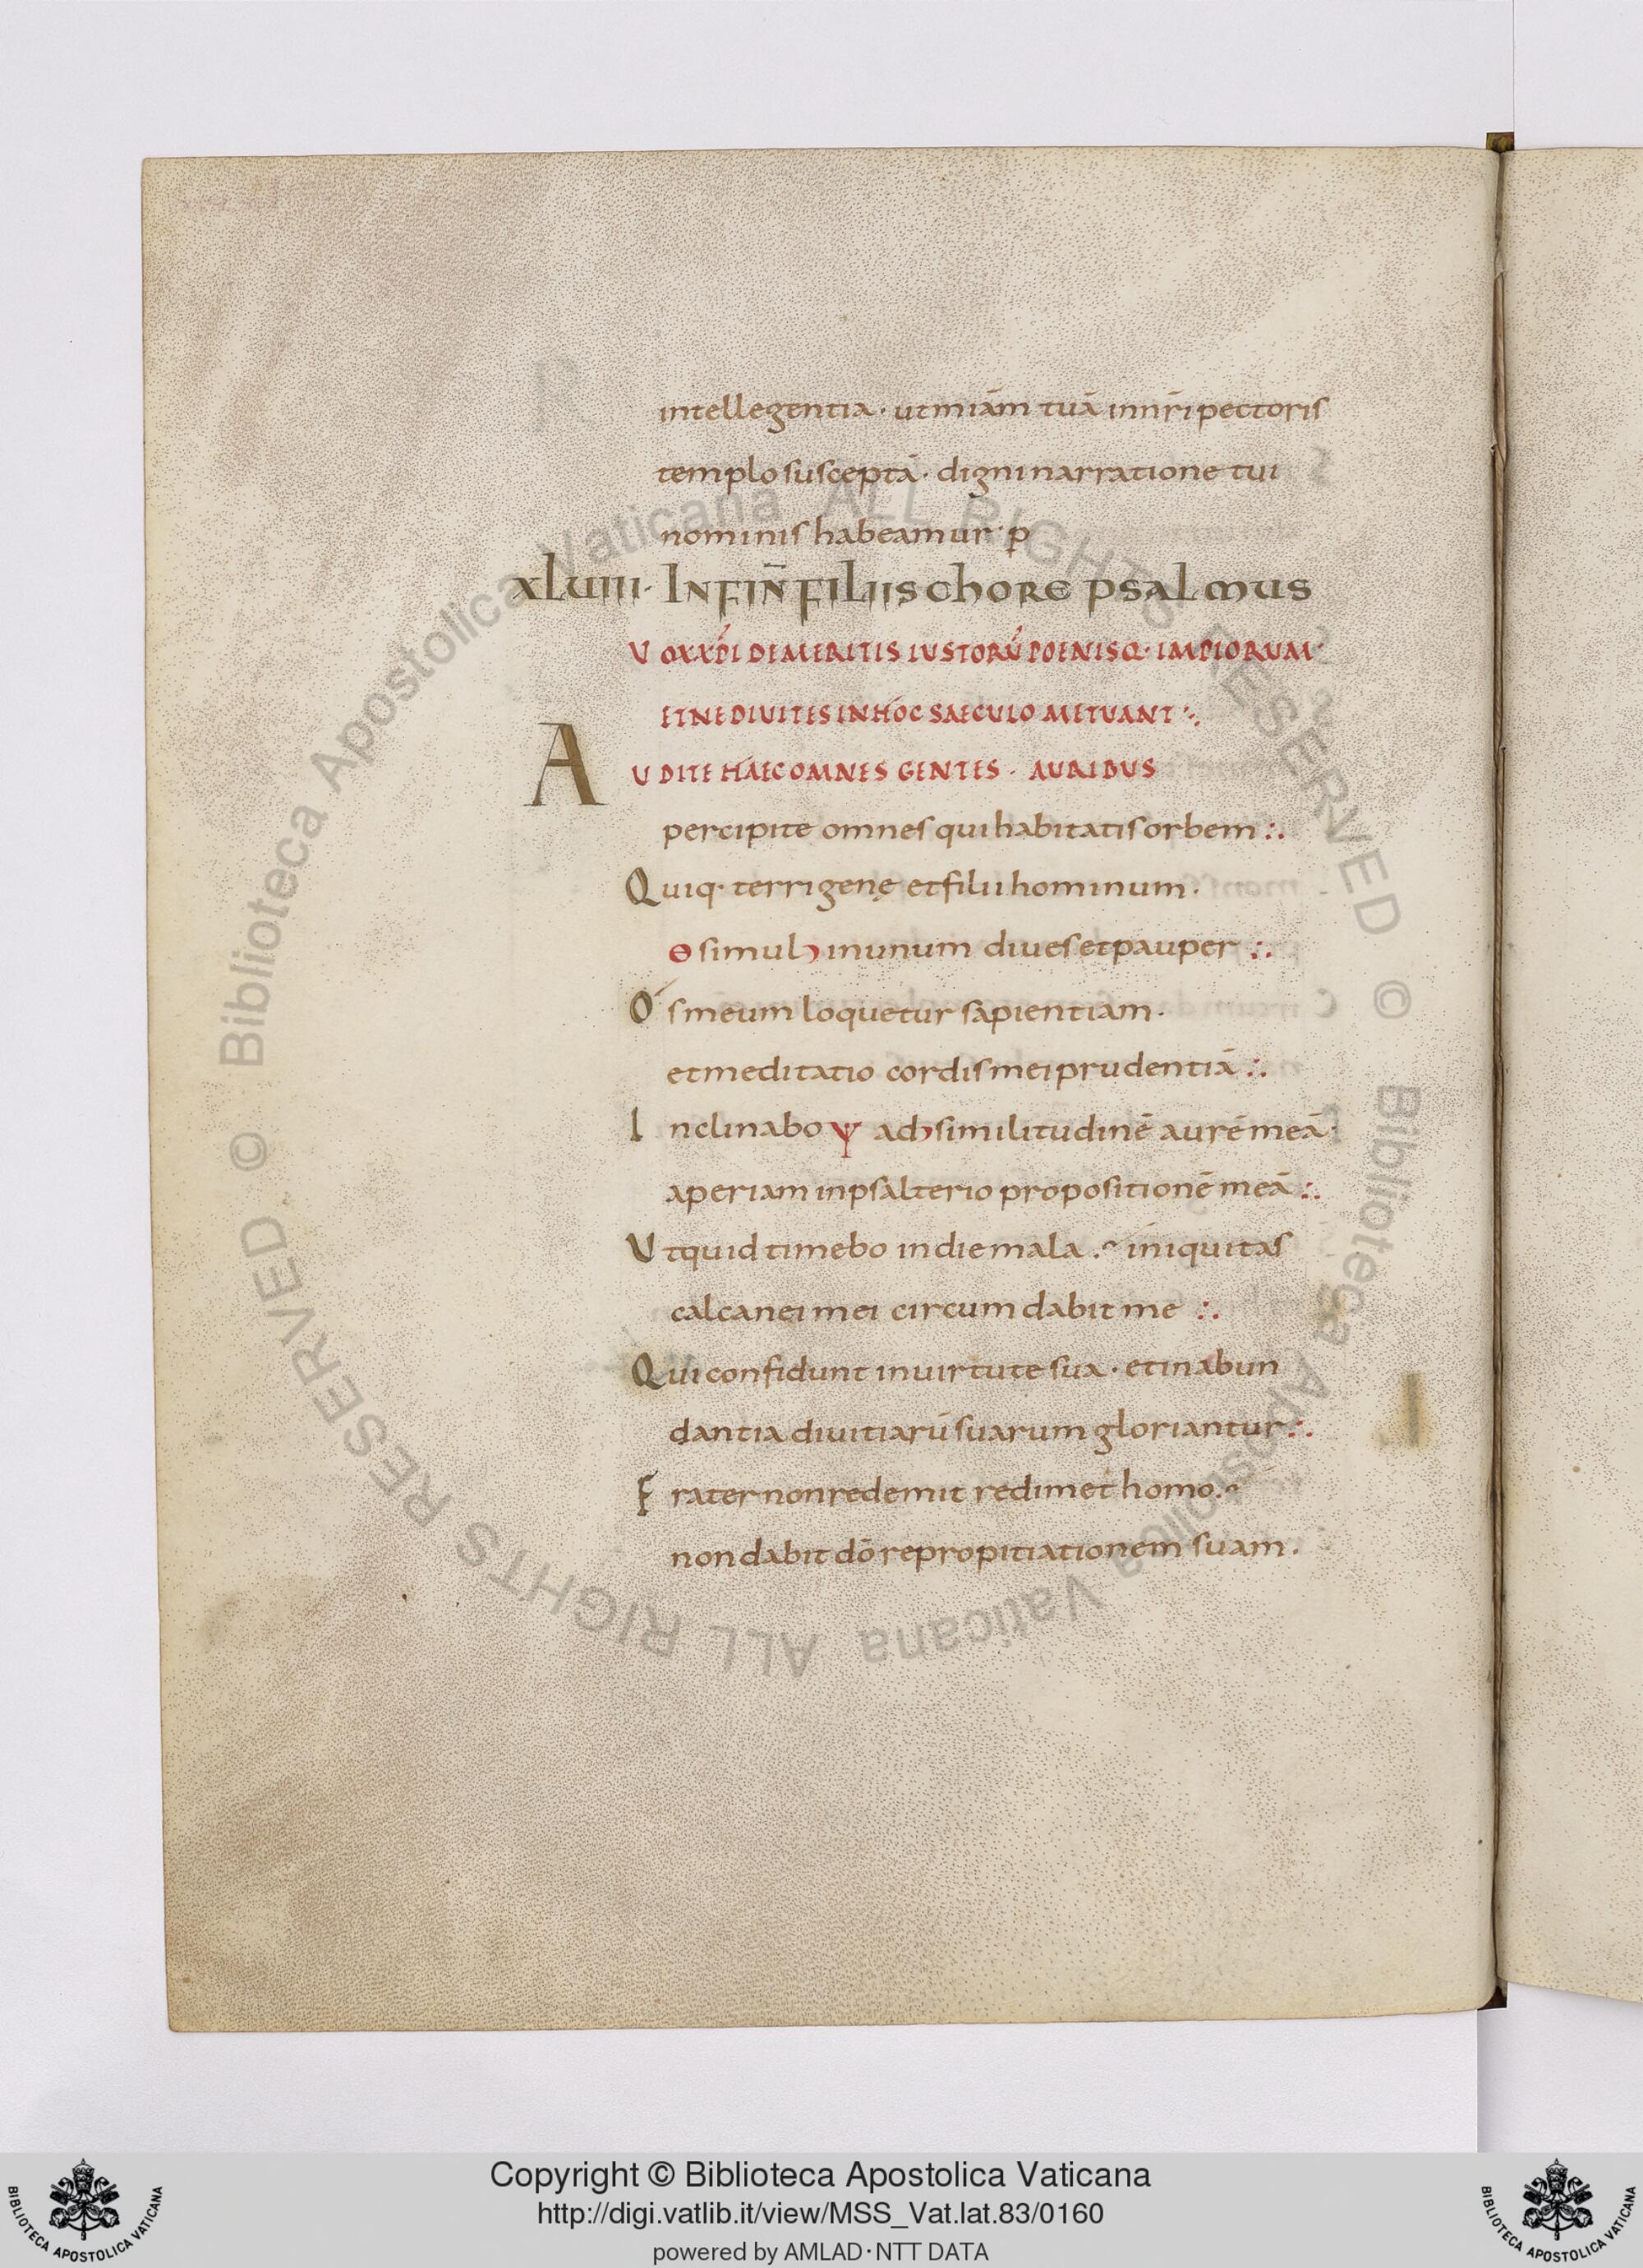 intellegentia · ut miām tuā in nr̄i pectoris
templo susceptā · digni narratione tui
nominis habeamur · p
xluiiii · INFIN̄ FILIIS CHORE PSALMUS
VOX XP̄I DE MERITIS IUSTORŪ POENISQ · IMPIORUM ·
ET NE DIUITES IN HOC SAECULO METUANT ∴
AUDITE HAEC OMNES GENTES · AURIBUS
percipite omnes qui habitatis orbem ∴
Quiq · terrigenę et filii hominum ·
simul in unum diues et pauper ∴
Os meum loquetur sapientiam ·
et meditatio cordis mei prudentiā ∴
Inclinabo ad similitudinē aurē meā ·
aperiam in psalterio propositionē meā ∴
Ut quid timebo in die mala . iniquitas
calcanei mei circumdabit me ∴
Qui confidunt in uirtute sua · et in abun
dantia diuitiarū suarum gloriantur ∴
Frater non redemit redimet homo .
non dabit dō repropitiationem suam ·
Copyright © Biblioteca Apostolica Vaticana
http://digi.vatlib.it/view/MSS_Vat.lat.83/0160
powered by AMLAD·NTT DATA
BIBLIOTECA APOSTOLICA VATICANA
BIBLIOTECA APOSTOLICA VATICANA
© Biblioteca Apostolica Vaticana ALL RIGHTS RESERVED
© Biblioteca Apostolica Vaticana ALL RIGHTS RESERVED